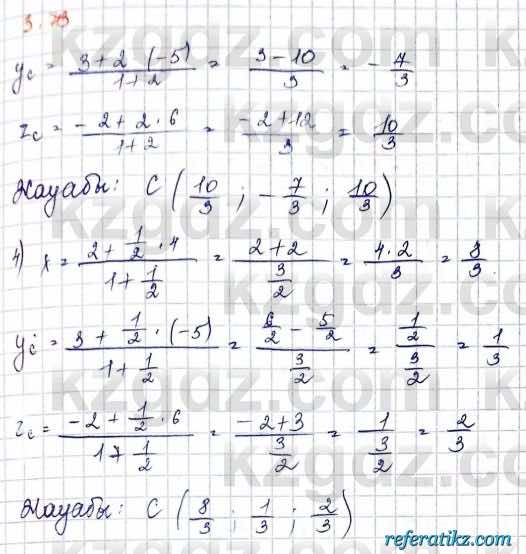 3.73
y_c = (3+2·(-5))/(1+2) = (3-10)/3 = -7/3
z_c = (-2+2·6)/(1+2) = (-2+12)/3 = 10/3
Жауабы: C (10/3 ; -7/3 ; 10/3)
4) x = (2+1/2·4)/(1+1/2) = (2+2)/(3/2) = (4·2)/3 = 8/3.
y_c = (3+1/2·(-5))/(1+1/2) = (6/2-5/2)/(3/2) = (1/2)/(3/2) = 1/3
z_c = (-2+1/2·6)/(1+1/2) = (-2+3)/(3/2) = 1/(3/2) = 2/3
Жауабы: C (8/3 ; 1/3 ; 2/3)
kzgdz.com
referatikz.com